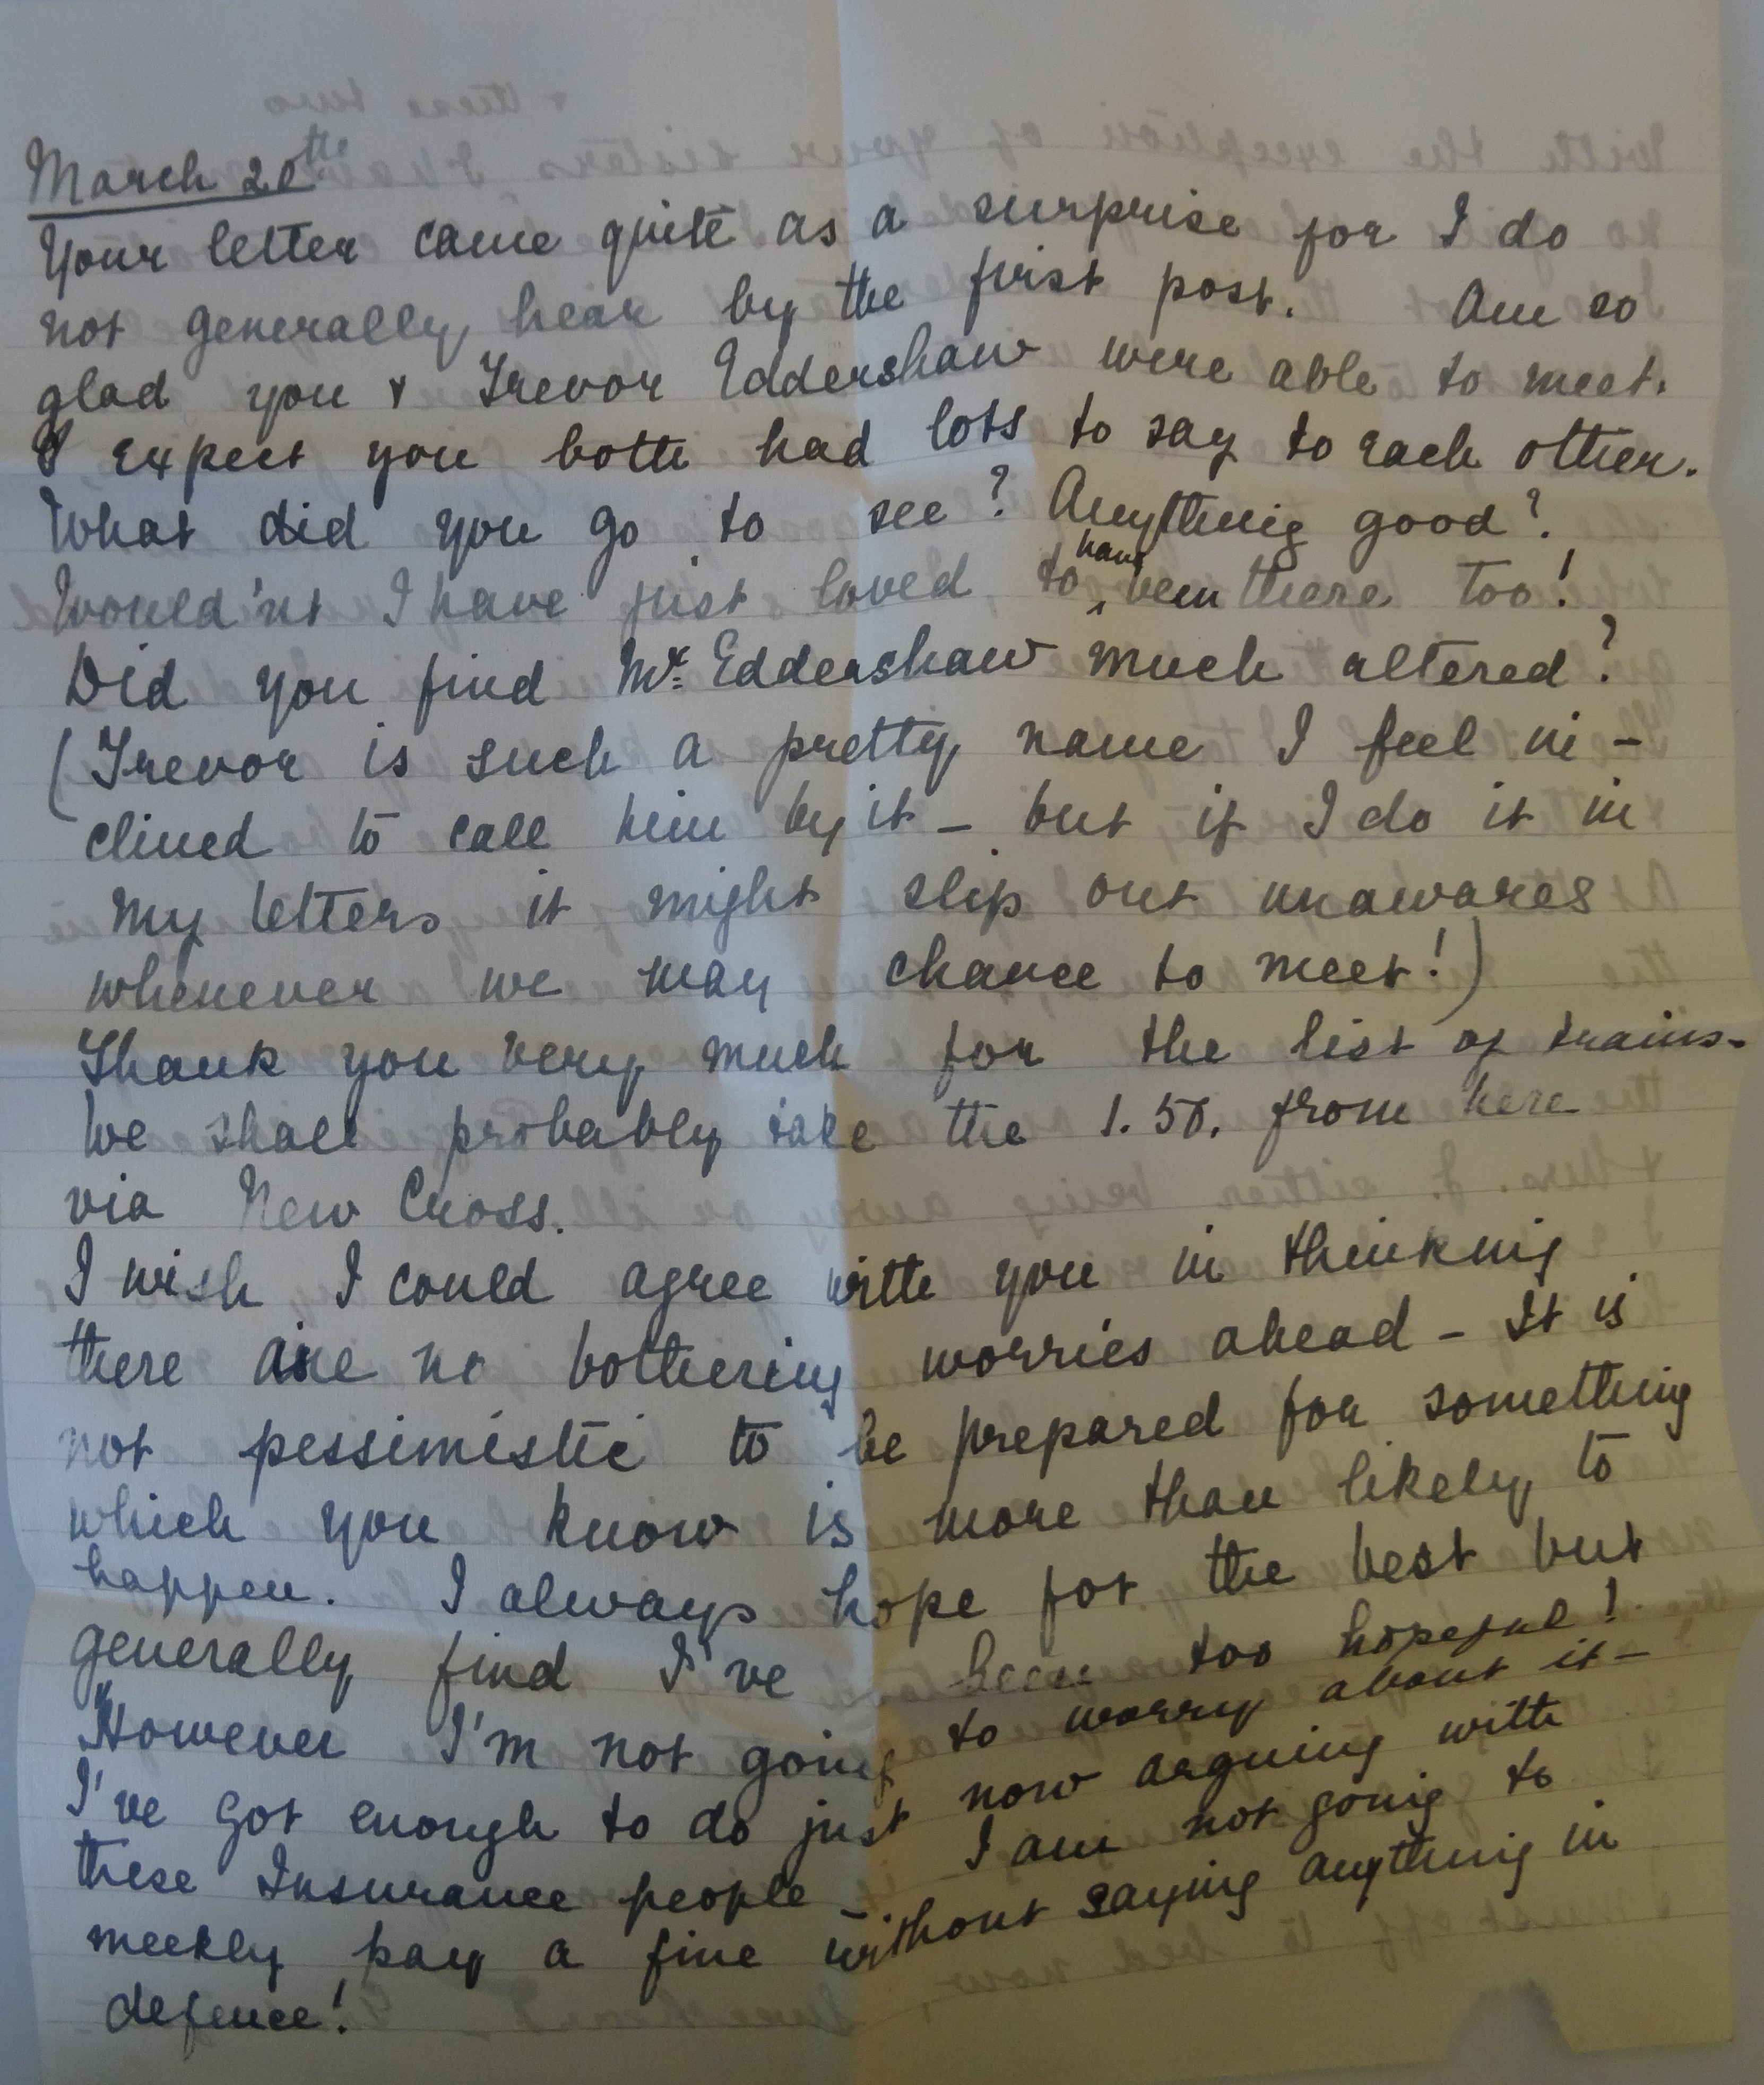 March 20th
Your letter came quite as a surprise for I do
not generally hear by the first post. Am so
glad you & Trevor Eddershaw were able to meet.
I expect you both had lots to say to each other.
What did you go to see? Anything good?
Would'nt I have just loved to have been there too!
Did you find Mr. Eddershaw much altered?
(Trevor is such a pretty name I feel in-
clined to call him by it - but if I do it in
my letters it might slip out unawares
whenever we may chance to meet!)
Thank you very much for the list of trains-
We shall probably take the 1.50. from here
via New Cross.
I wish I could agree with you in thinking
there are no bothering worries ahead - It is
not pessimistic to be prepared for something
which you know is more than likely to
happen. I always hope for the best but
generally find I've been too hopeful!
However I'm not going to worry about it-
I've got enough to do just now arguing with
these Insurance people - I am not going to
meekly pay a fine without saying anything in
defence!